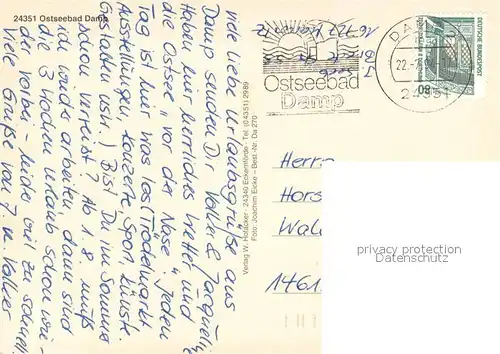 24351 Ostseebad Damp
viele liebe Urlaubsgrüße aus
Damp senden Dir Volker & Jacqueline
Haben hier herrliches Wetter und
die Ostsee "vor der Nase". Jeden
Tag ist hier was los (Trödelmarkt
Ausstellungen, Konzerte, Sport, Künstl.
Gestalten usw.) Bist Du im Sommer
schon verreist? Ab 1.8. muß
ich wieder arbeiten, dann sind
die 3 Wochen Urlaub schon wie-
der vorbei - leider viel zu schnell
Viele Grüße von J. u. Volker
Verlag W. Hofäcker · 24340 Eckernförde · Tel. (04351) 2989
Foto: Joachim Eicke - Best.-Nr. Da 270
Ostseebad
Damp
DAMP
22.-7.
24351
DEUTSCHE BUNDESPOST
80
Herrn
Hors
Wal
1461
privacy protection
Datenschutz